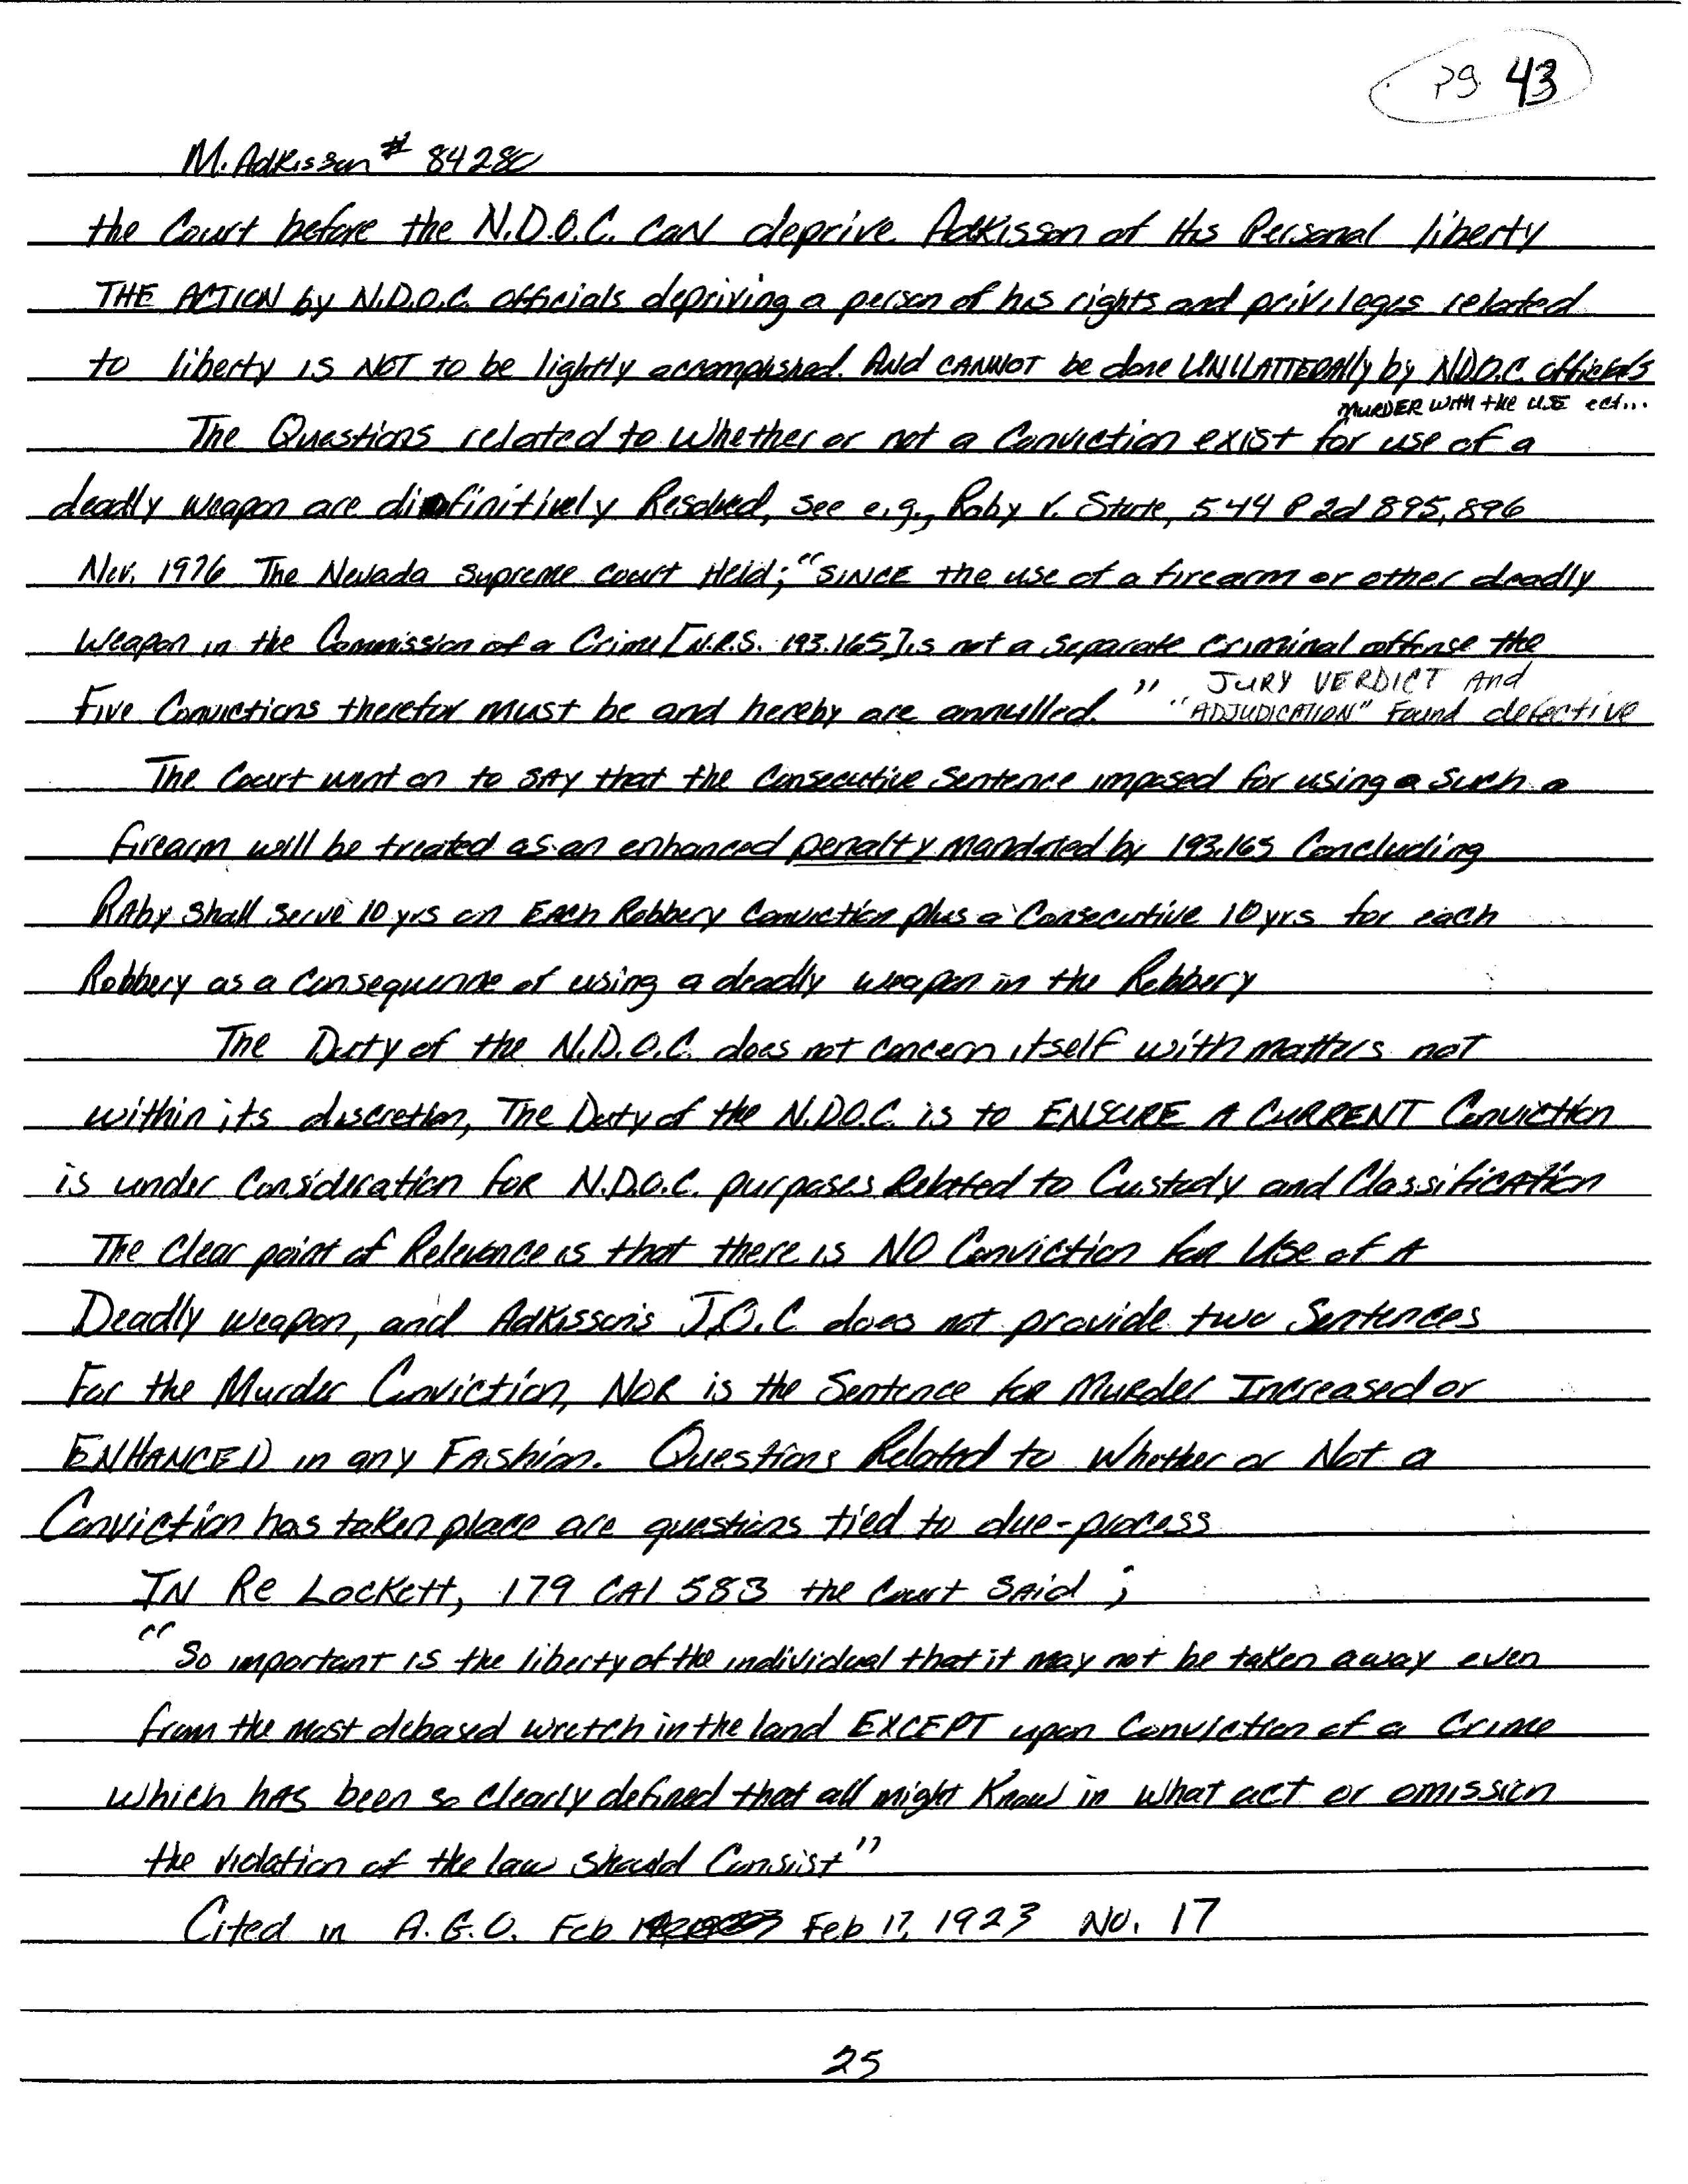 pg. 43
M. Adkisson # 84280
the Court before the N.D.O.C. CAN deprive Adkisson of His Personal liberty
THE ACTION by N.D.O.C. officials depriving a person of his rights and privileges related
to liberty is NOT to be lightly accomplished. And CANNOT be done UNILATTERAlly by N.D.O.C. officials
MURDER with the USE ect...
The Questions related to whether or not a Conviction exist for use of a
deadly weapon are difinitively Resolved, see e.g., Raby V. State, 544 P 2d 895, 896
Nev. 1976 The Nevada Supreme Court Held; "SINCE the use of a firearm or other deadly
Weapon in the Commission of a Crime [N.R.S. 193.165] is not a separate criminal offense the
JURY VERDICT And
Five Convictions therefor must be and hereby are annulled." "ADJUDICATION" Found defective
The Court went on to SAY that the Consecutive Sentence imposed for using a such a
firearm will be treated as an enhanced penalty mandated by 193.165 Concluding
RAby Shall Serve 10 yrs on EACh Robbery Conviction plus a Consecutive 10 yrs for each
Robbery as a Consequence of using a deadly weapon in the Robbery
The Duty of the N.D.O.C. does not concern itself with matters not
within its discretion, The Duty of the N.D.O.C. is to ENSURE A CURRENT Conviction
is under Consideration FOR N.D.O.C. purposes Related to Custody and ClassificAtion
The Clear point of Relevance is that there is NO Conviction for Use of A
Deadly weapon, and Adkisson's J.O.C does not provide two Sentences
For the Murder Conviction, NOR is the Sentence for Murder Increased or
ENHANCED in any FAshion. Questions Related to Whether or Not a
Conviction has taken place are questions tied to due-process
IN Re LocKett, 179 CAl 583 the Court SAid ;
"So important is the liberty of the individual that it may not be taken away even
from the most debased wretch in the land EXCEPT upon Conviction of a Crime
which hAs been so clearly defined that all might Know in what act or omission
the violation of the law should Consist"
Cited in A.G.O. Feb Feb 17, 1923 No. 17
25